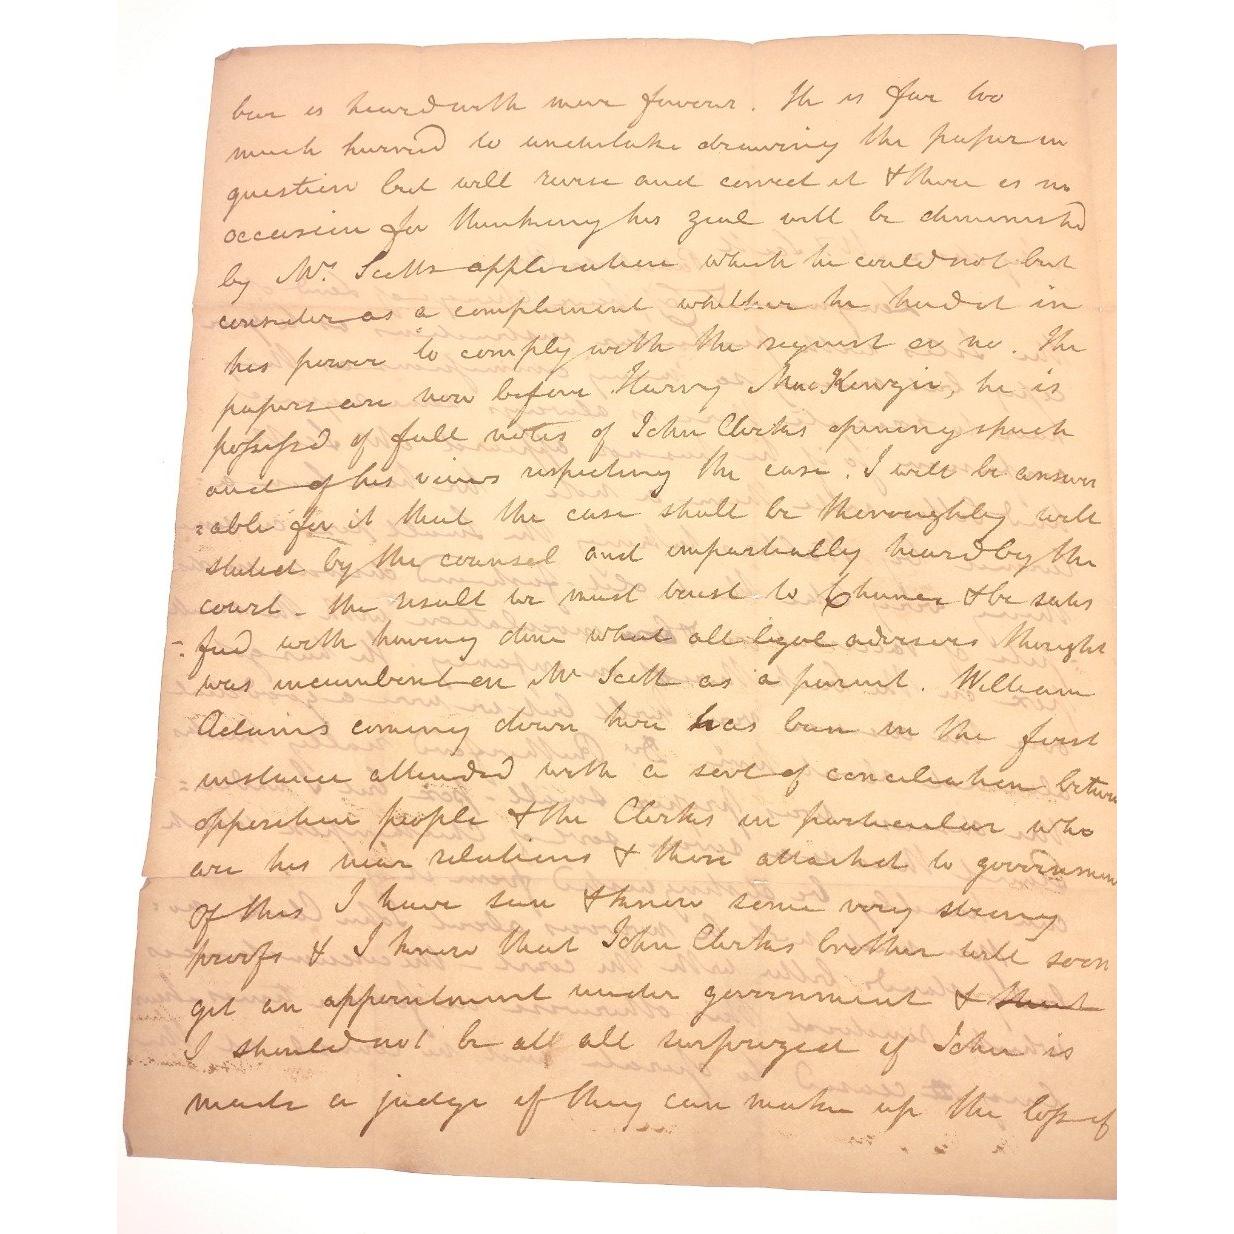 bar is heard with more favour. He is far too
much hurried to undertake drawing the paper in
question but will revise and correct it & there is no
occasion for thinking his zeal will be diminishd
by Mr Scotts application which he could not but
consider as a complement whether he had it in
his power to comply with the request or no. The
papers are now before Henry MacKenzie, he is
possessd of full notes of John Clerks opening speech
and of his views respecting the case. I will be answer
=able for it that the case shall be thoroughly well
stated by the counsel and impartially heard by the
court - the result we must trust to Chance & be satis
=fied with having done what all legal advisers thought
was incumbent on Mr Scott as a parent. William
Adams coming down here has been in the first
instance attended with a sort of conciliation between
opposition people & the Clerks in particular who
are his near relations & those attached to government
Of this I have seen & know some very strong
proofs & I know that John Clerks brother will soon
get an appointment under government &
I should not be att all surprized if John is
made a judge if they can make up the loss of